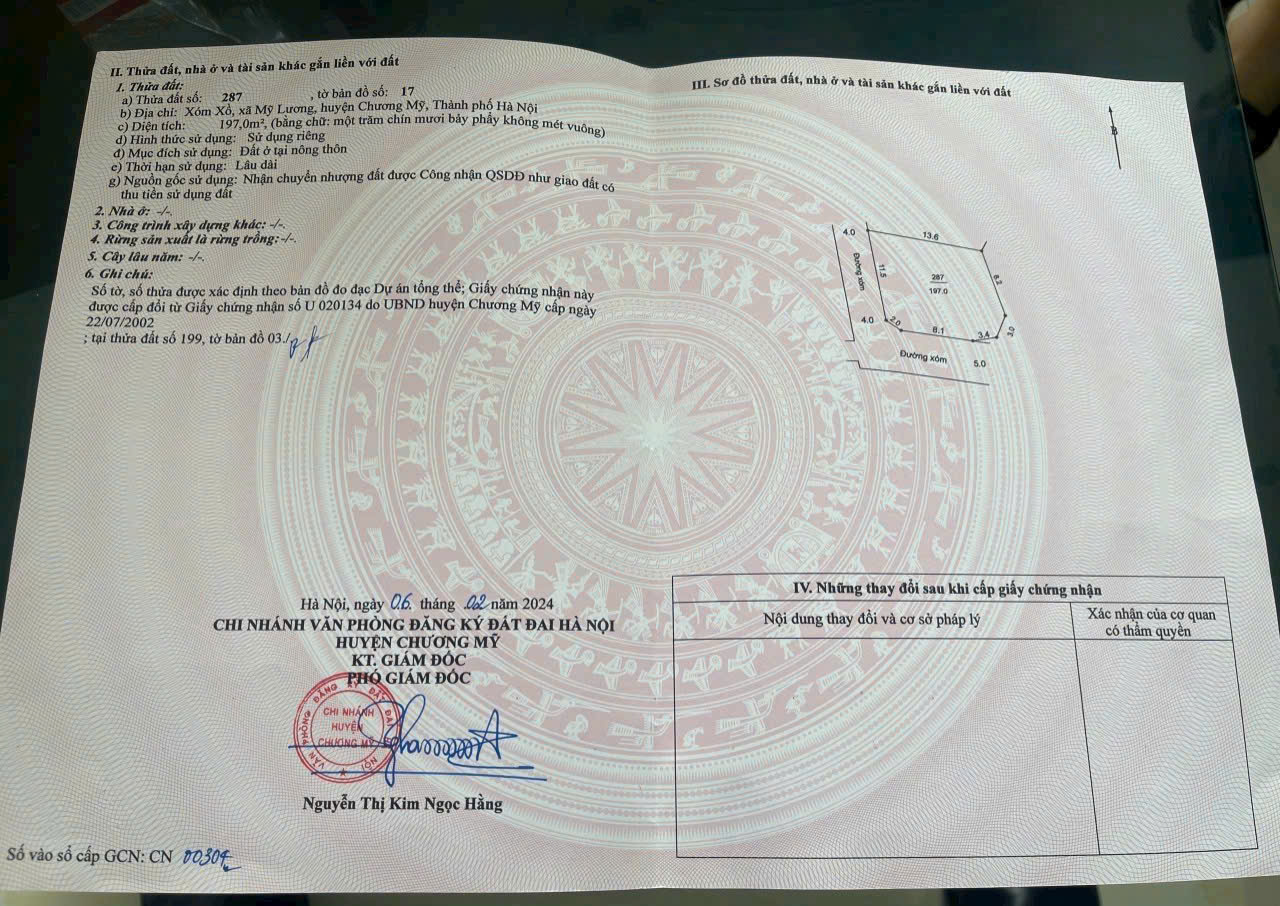 II. Thửa đất, nhà ở và tài sản khác gắn liền với đất
1. Thửa đất:
a) Thửa đất số: 287 , tờ bản đồ số: 17
b) Địa chỉ: Xóm Xổ, xã Mỹ Lương, huyện Chương Mỹ, Thành phố Hà Nội
c) Diện tích: 197,0m², (bằng chữ: một trăm chín mươi bảy phẩy không mét vuông)
d) Hình thức sử dụng: Sử dụng riêng
đ) Mục đích sử dụng: Đất ở tại nông thôn
e) Thời hạn sử dụng: Lâu dài
g) Nguồn gốc sử dụng: Nhận chuyển nhượng đất được Công nhận QSDĐ như giao đất có
thu tiền sử dụng đất
2. Nhà ở: -/-.
3. Công trình xây dựng khác: -/-.
4. Rừng sản xuất là rừng trồng: -/-.
5. Cây lâu năm: -/-.
6. Ghi chú:
Số tờ, số thửa được xác định theo bản đồ đo đạc Dự án tổng thể; Giấy chứng nhận này
được cấp đổi từ Giấy chứng nhận số U 020134 do UBND huyện Chương Mỹ cấp ngày
22/07/2002
; tại thửa đất số 199, tờ bản đồ 03./.
Hà Nội, ngày 06. tháng .02 năm 2024
CHI NHÁNH VĂN PHÒNG ĐĂNG KÝ ĐẤT ĐAI HÀ NỘI
HUYỆN CHƯƠNG MỸ
KT. GIÁM ĐỐC
PHÓ GIÁM ĐỐC
VĂN PHÒNG ĐĂNG KÝ ĐẤT ĐAI HÀ NỘI
CHI NHÁNH
HUYỆN
CHƯƠNG MỸ
Nguyễn Thị Kim Ngọc Hằng
Số vào sổ cấp GCN: CN
III. Sơ đồ thửa đất, nhà ở và tài sản khác gắn liền với đất
B
4.0
13.6
Đường xóm
11.5
287
197.0
8.2
4.0
2.0
8.1
3.4
3.0
Đường xóm
5.0
IV. Những thay đổi sau khi cấp giấy chứng nhận
Nội dung thay đổi và cơ sở pháp lý
Xác nhận của cơ quan
có thẩm quyền